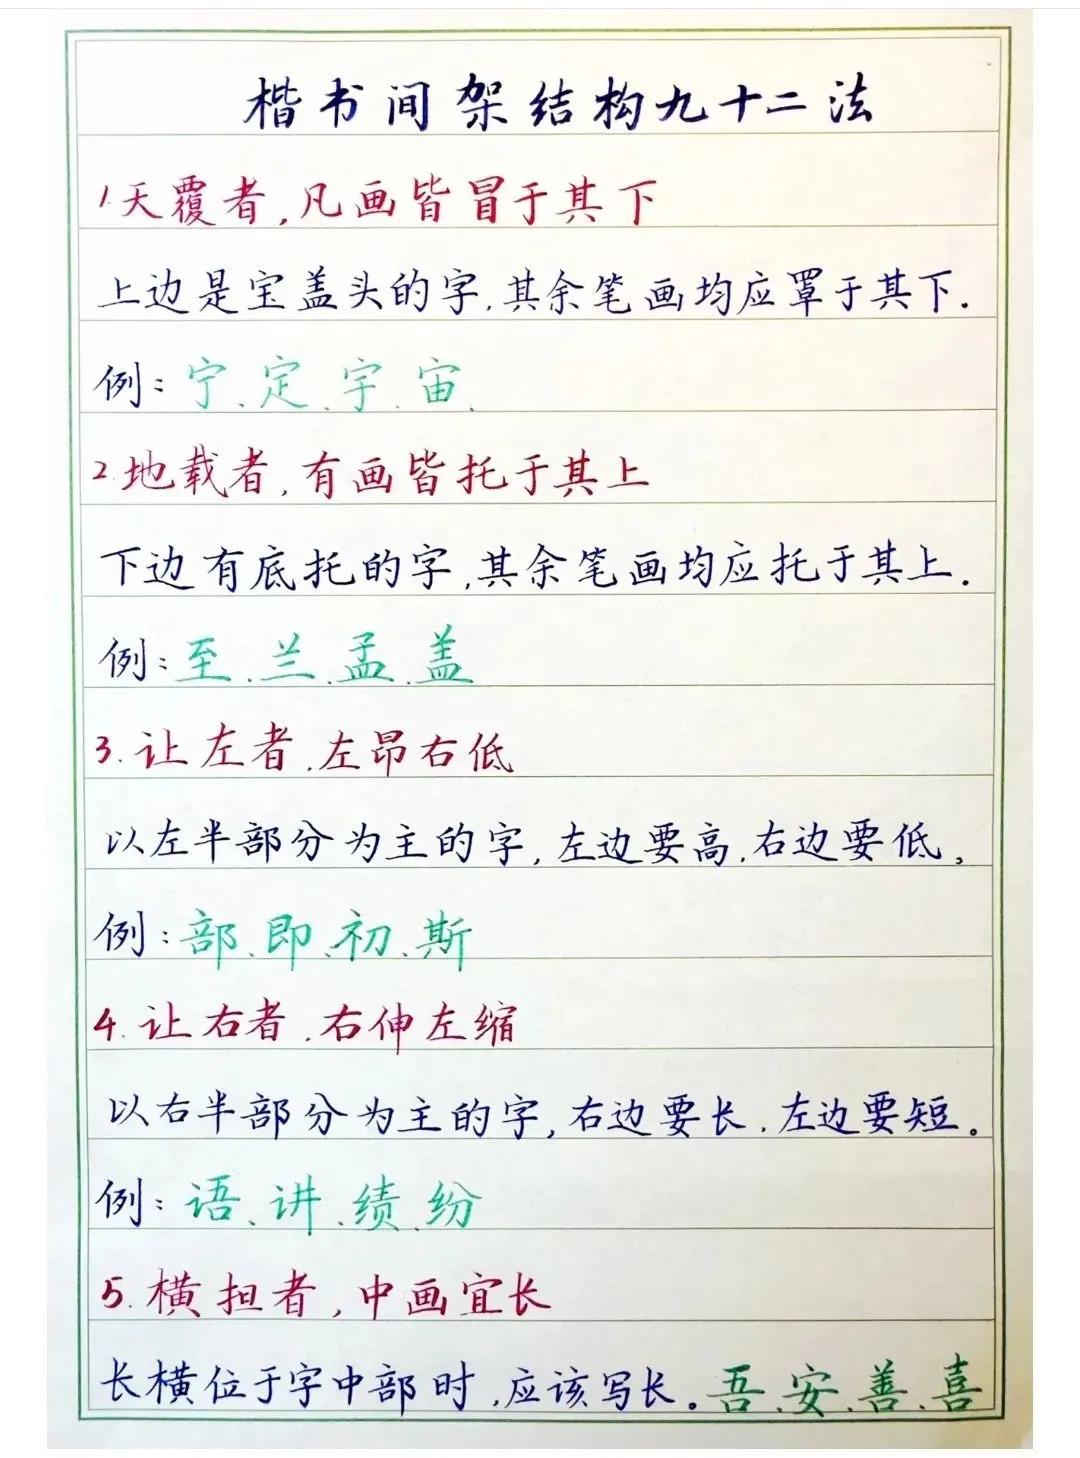 楷书间架结构九十二法
1.天覆者,凡画皆冒于其下
上边是宝盖头的字,其余笔画均应罩于其下.
例:宁、定、宇、宙、
2.地载者,有画皆托于其上
下边有底托的字,其余笔画均应托于其上.
例:至、兰、孟、盖
3.让左者、左昂右低
以左半部分为主的字,左边要高,右边要低,
例:部、即、初、斯
4.让右者、右伸左缩
以右半部分为主的字,右边要长、左边要短。
例:语、讲、绩、纷
5.横担者,中画宜长
长横位于字中部时,应该写长。吾、安、善、喜